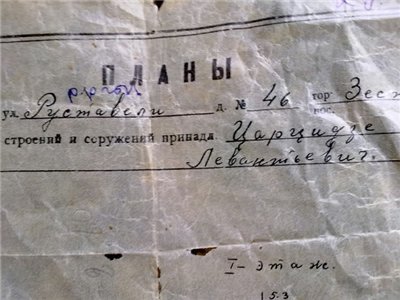 ПЛАНЫ
ул. Руставели д. № 46 гор. Зест
пос.
строений и соружений принадл. Царцидзе
Левантьевич.
I - этаж.
15.3